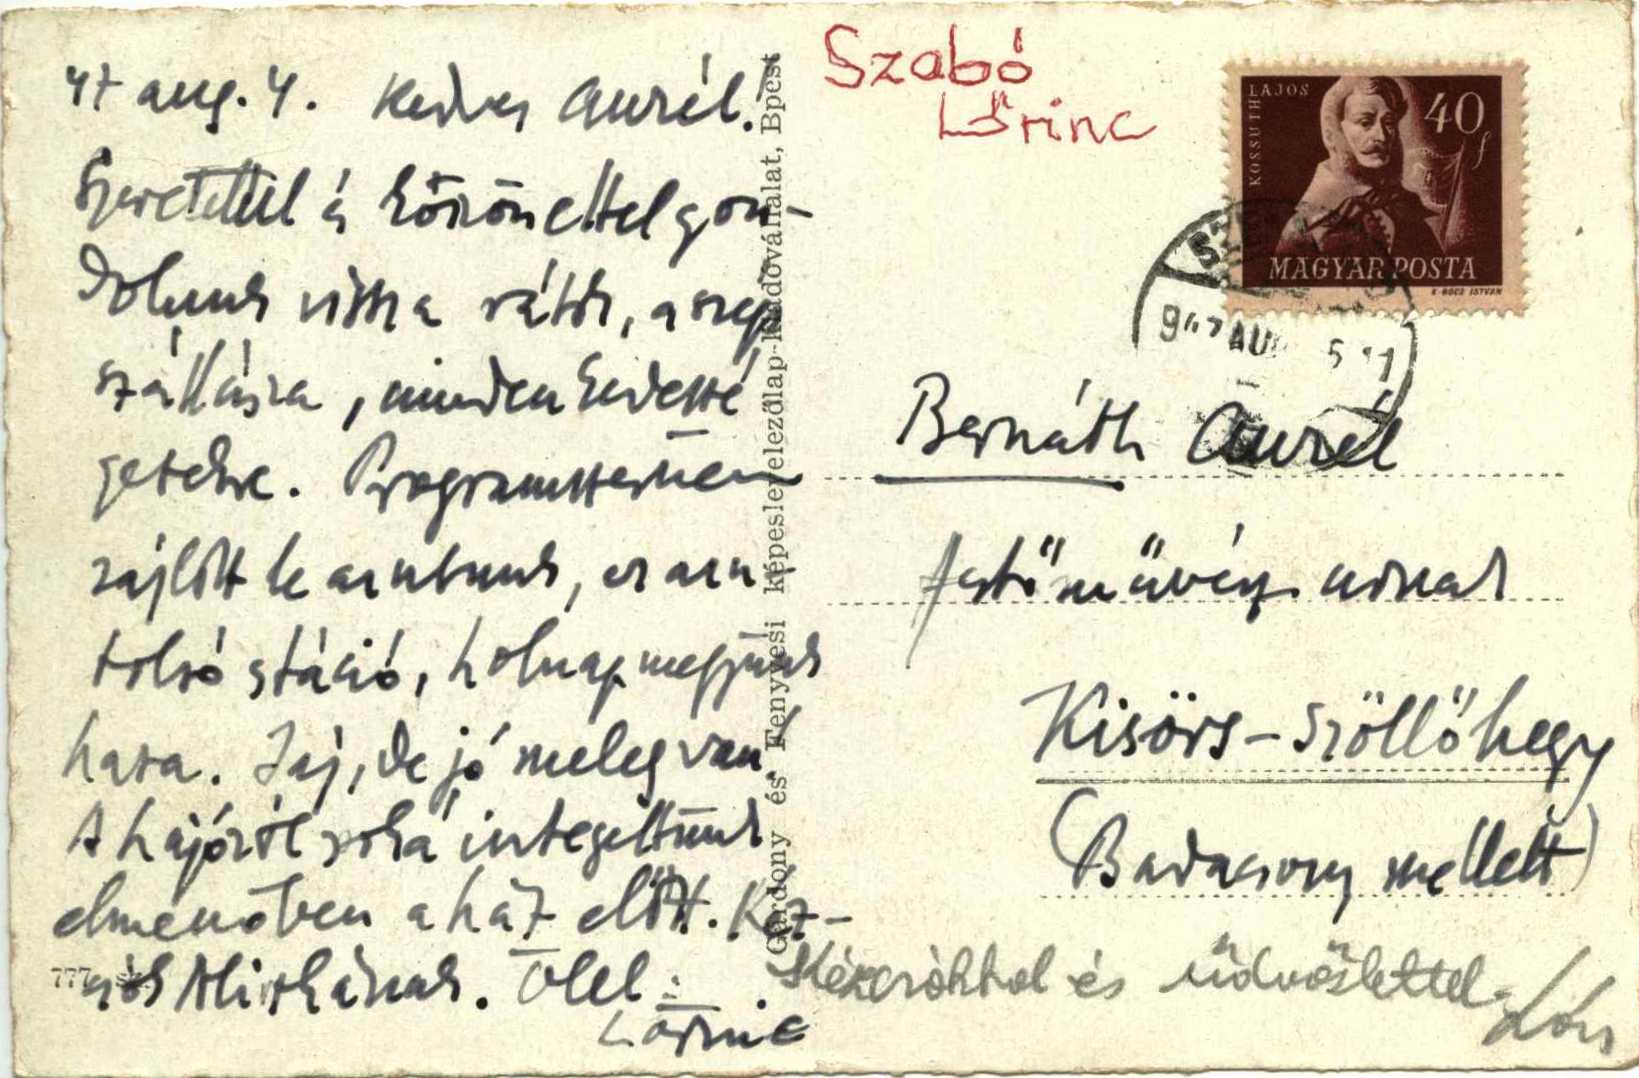 47 aug. 4. Kedves Aurél!
Szeretettel és köszönettel gon-
dolunk vissza rátok, a szép
szállásra, minden kedvessé
getekre. Programszerűen
zajlott le az utunk, ez az u
tolsó stáció, holnap megyünk
haza. Jaj, de jó meleg van!
A hajóról soká integettünk
elmenőben a ház előtt. Kéz-
csók Aliszkának. Ölel
Lőrinc
777
Gondony és Fenyvesi képeslevelezőlap-kiadóvállalat, Bpest
Szabó
Lőrinc
KOSSUTH LAJOS
40 f
MAGYAR POSTA
947 AUG 5 11
Bernáth Aurél
festőművész úrnak
Kisörs-Szöllőhegy
(Badacsony mellett)
Kézcsókkal és üdvözlettel